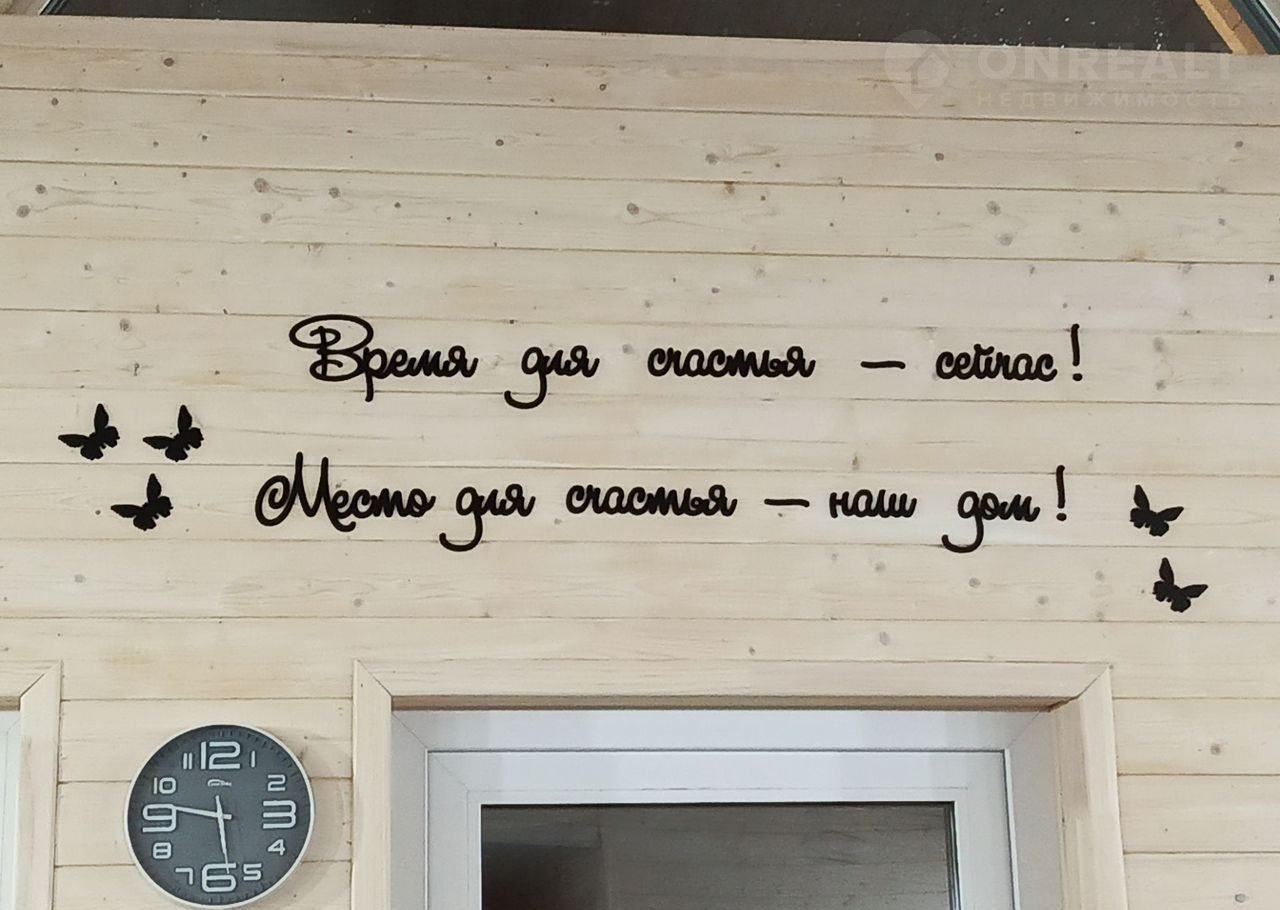 ONREALT
НЕДВИЖИМОСТЬ
Время для счастья — сейчас!
Место для счастья — наш дом!
11 12 1
10 2
9 3
8 4
7 6 5